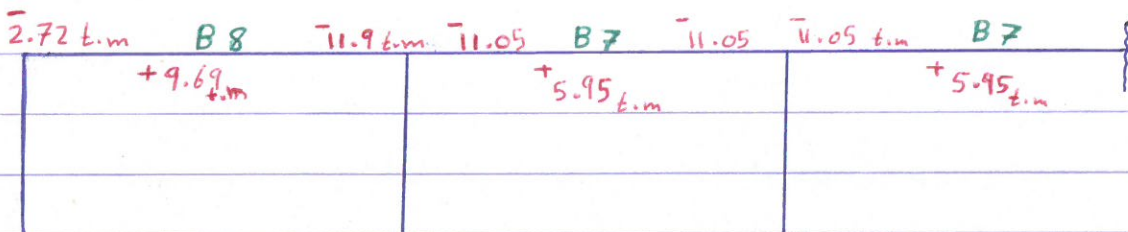 -2.72 t.m B 8 -11.9 t.m -11.05 B 7 -11.05 -11.05 t.m B 7
+9.69 t.m +5.95 t.m +5.95 t.m